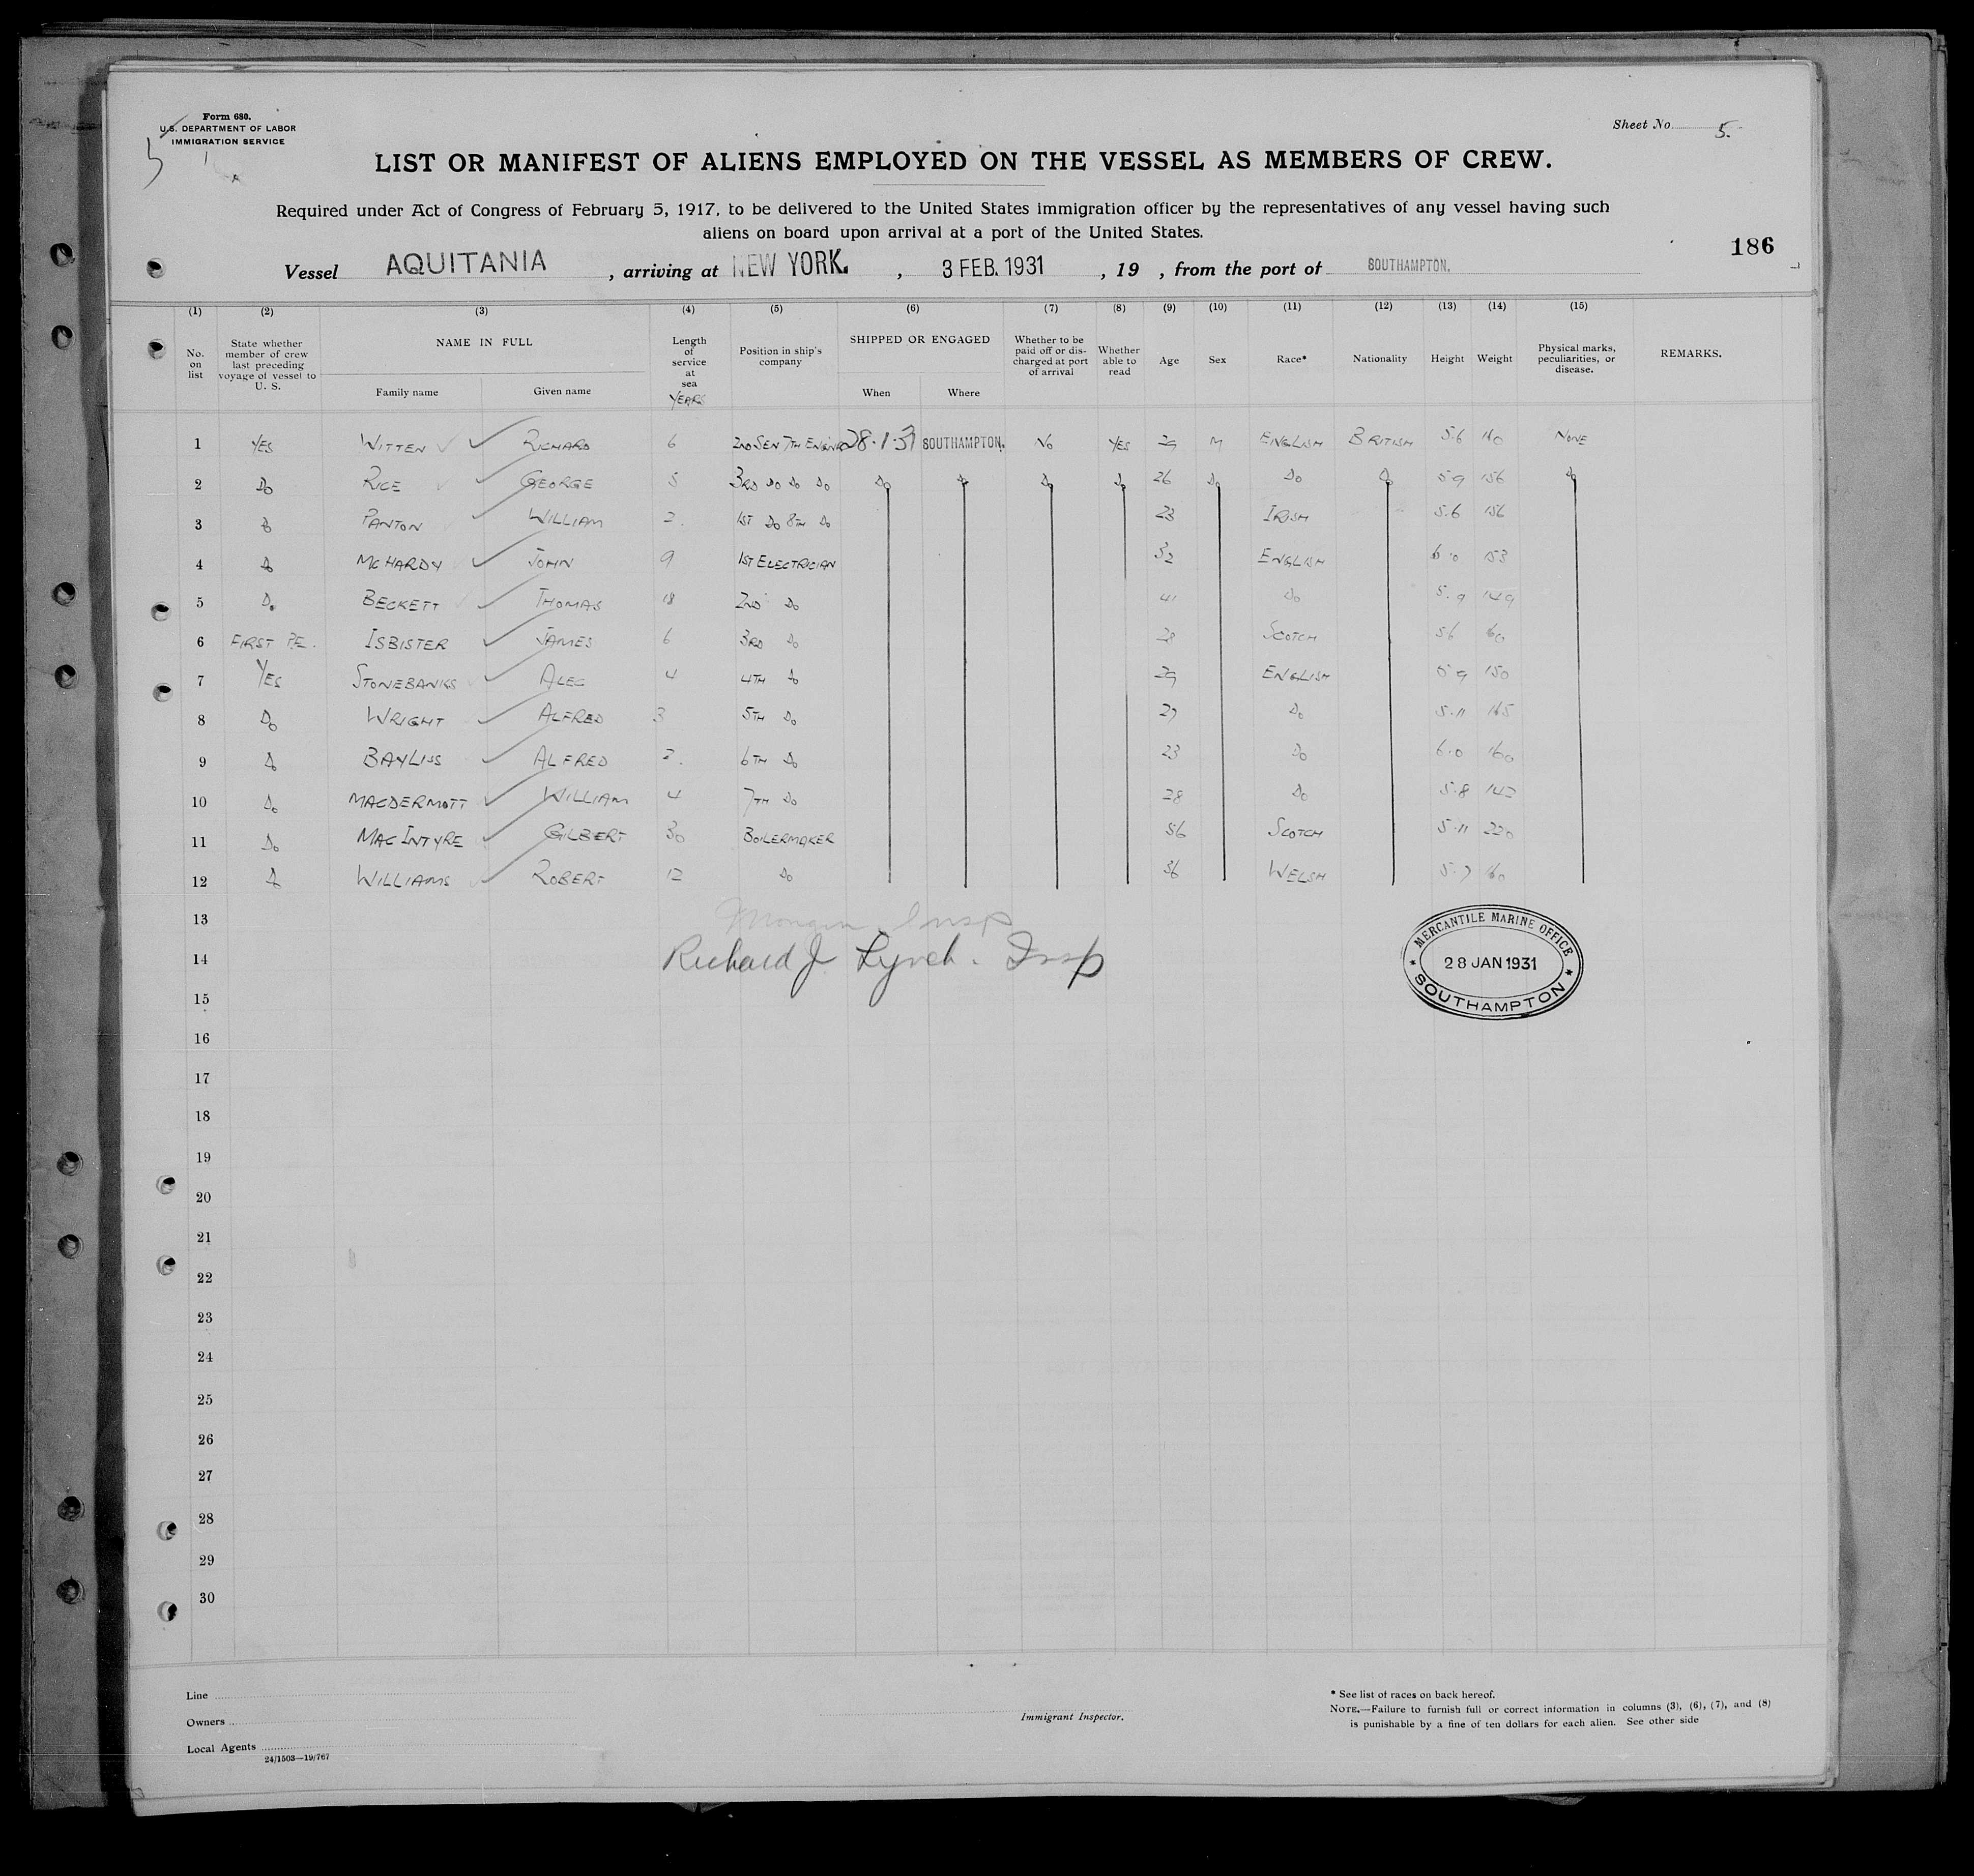 Form 680.
U.S. DEPARTMENT OF LABOR
IMMIGRATION SERVICE
Sheet No. 5.
LIST OR MANIFEST OF ALIENS EMPLOYED ON THE VESSEL AS MEMBERS OF CREW.
Required under Act of Congress of February 5, 1917, to be delivered to the United States immigration officer by the representatives of any vessel having such
aliens on board upon arrival at a port of the United States.
186
Vessel AQUITANIA, arriving at NEW YORK., 3 FEB. 1931, 19 , from the port of SOUTHAMPTON.
(1) (2) (3) (4) (5) (6) (7) (8) (9) (10) (11) (12) (13) (14) (15)
No. on list
State whether member of crew last preceding voyage of vessel to U. S.
NAME IN FULL
Family name
Given name
Length of service at sea YEARS
Position in ship's company
SHIPPED OR ENGAGED
When
Where
Whether to be paid off or discharged at port of arrival
Whether able to read
Age
Sex
Race*
Nationality
Height
Weight
Physical marks, peculiarities, or disease.
REMARKS.
1 YES WITTEN RICHARD 6 2ND SEN 7TH ENGINR 28·1·31 SOUTHAMPTON. NO YES 29 M ENGLISH BRITISH 5.6 NONE
2 Do RICE GEORGE 5 3RD Do Do Do Do Do Do Do 26 Do Do Do 5.9 156 Do
3 Do PANTON WILLIAM 2. 1ST Do 8TH Do 23 IRISH 5.6 156
4 Do McHARDY JOHN 9 1ST ELECTRICIAN 32 ENGLISH 6.0 153
5 Do BECKETT THOMAS 18 2ND Do 41 Do 5.9 149
6 FIRST ISBISTER JAMES 6 3RD Do 28 SCOTCH 5.6 160
7 YES STONEBANKS ALEC 4 4TH Do 29 ENGLISH 5.9 150
8 Do WRIGHT ALFRED 3 5TH Do 27 Do 5.11 165
9 Do BAYLISS ALFRED 2. 6TH Do 23 Do 6.0 160
10 Do MACDERMOTT WILLIAM 4 7TH Do 28 Do 5.8 142
11 Do MACINTYRE GILBERT 30 BOILERMAKER 56 SCOTCH 5.11 220
12 Do WILLIAMS ROBERT 12 Do 36 WELSH 5.7 160
13 Insp
14 Richard J. Lynch. Insp
MERCANTILE MARINE OFFICE
28 JAN 1931
SOUTHAMPTON
15
16
17
18
19
20
21
22
23
24
25
26
27
28
29
30
Line
Owners
Local Agents
24/1503—19/767
Immigrant Inspector.
* See list of races on back hereof.
NOTE.—Failure to furnish full or correct information in columns (3), (6), (7), and (8)
is punishable by a fine of ten dollars for each alien. See other side